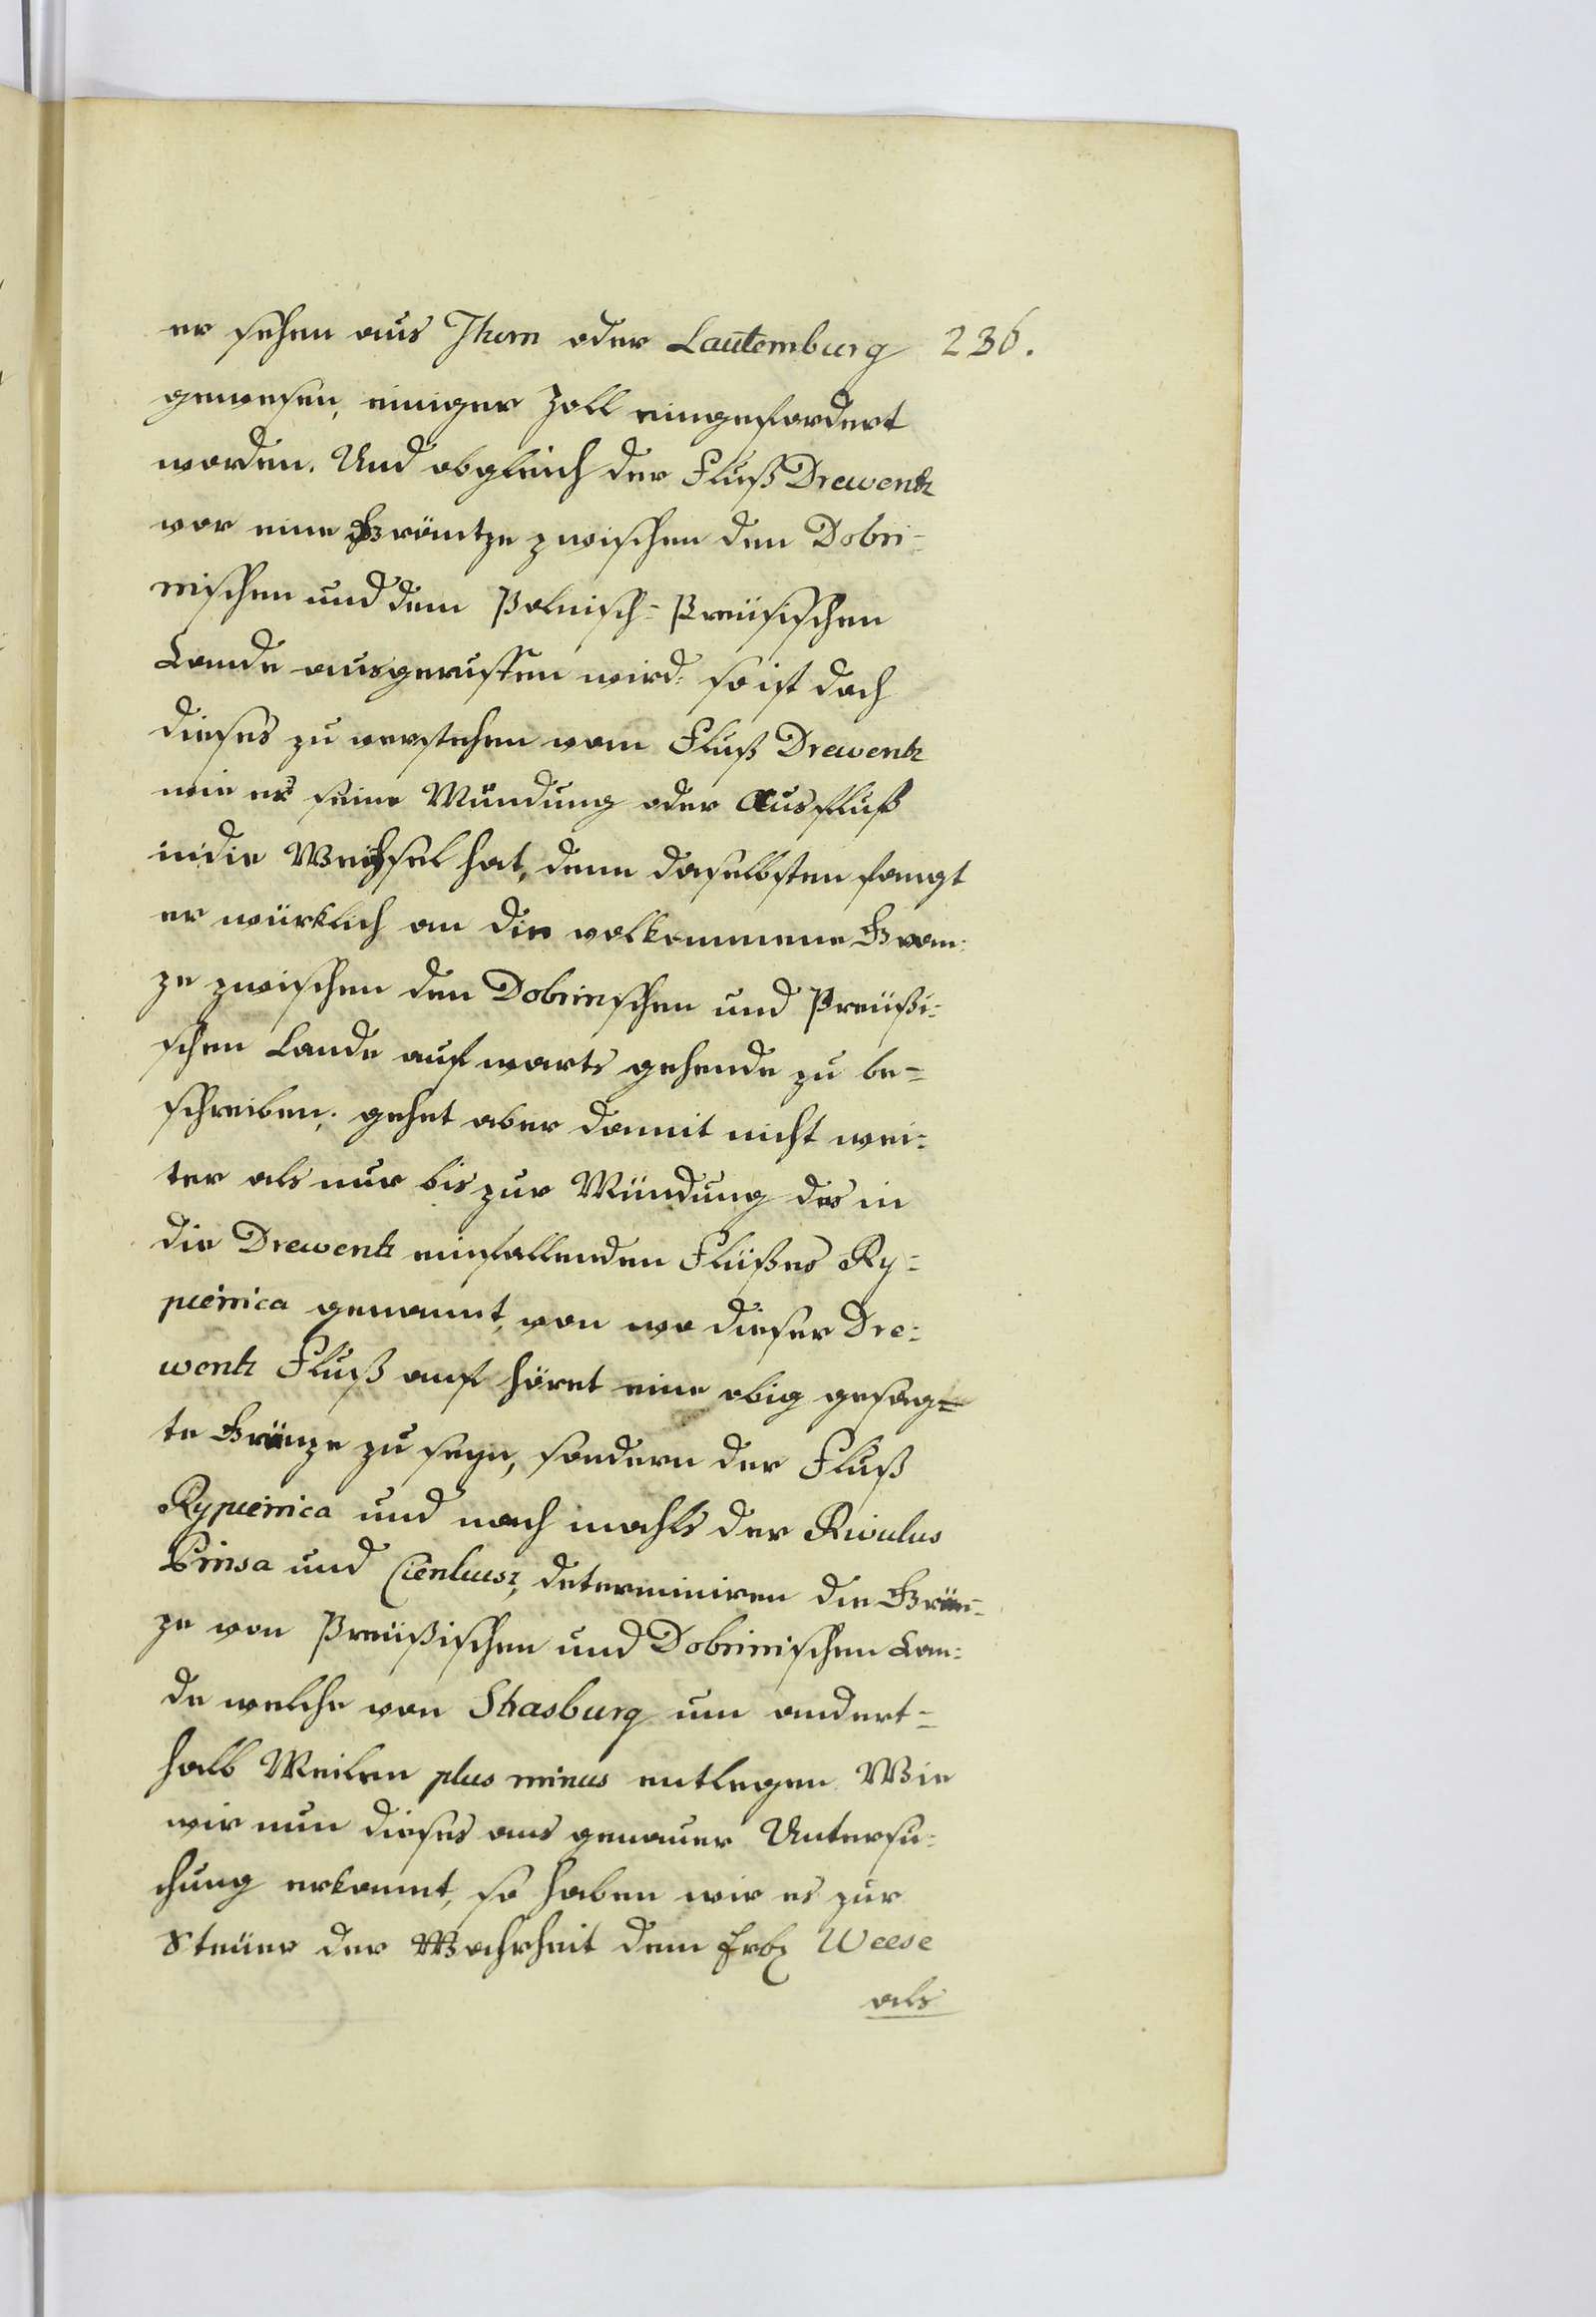 er sehen aus Thorn oder Lautemburg 236.
gewesen, einiger Zoll eingefordert
worden. Und obgleich der Fluß Drewentz
vor eine Gräntze zwischen den Dobri-
nischen und dem Polnisch-Preüsischen
Lande ausgeruffen wird: so ist doch
dieses zu verstehen vom Fluß Drewentz
wie er seine Mündung oder Ausfluß
in die Weichsel hat, denn daselbsten fangt
er würklich an die vollkommene Gran-
ze zwischen den Dobrinschen und Preüßi-
schen Lande aufwarts gehende zu be-
schreiben; gehet aber damit nicht wei-
ter als nur bis zur Mündung des in
die Drewentz einfallenden Flüßes Ry-
pienica genannt, von wo dieser Dre-
wentz Fluß auf höret eine obig gesag-
te Gränze zu seyn, sondern der Fluß
Rypienica und nach mahls der Rivulus
Pinsa und Cienkusz, determiniren die Grän-
ze von Preüßischen und Dobrinischen Lan-
de welche von Strasburg um andert-
halb Meilen plus minus entlegen Wie
wir nun dieses aus genauer Untersu-
chung erkannt, so haben wir es zur
Steüer der Wahrheit dem Weese
als